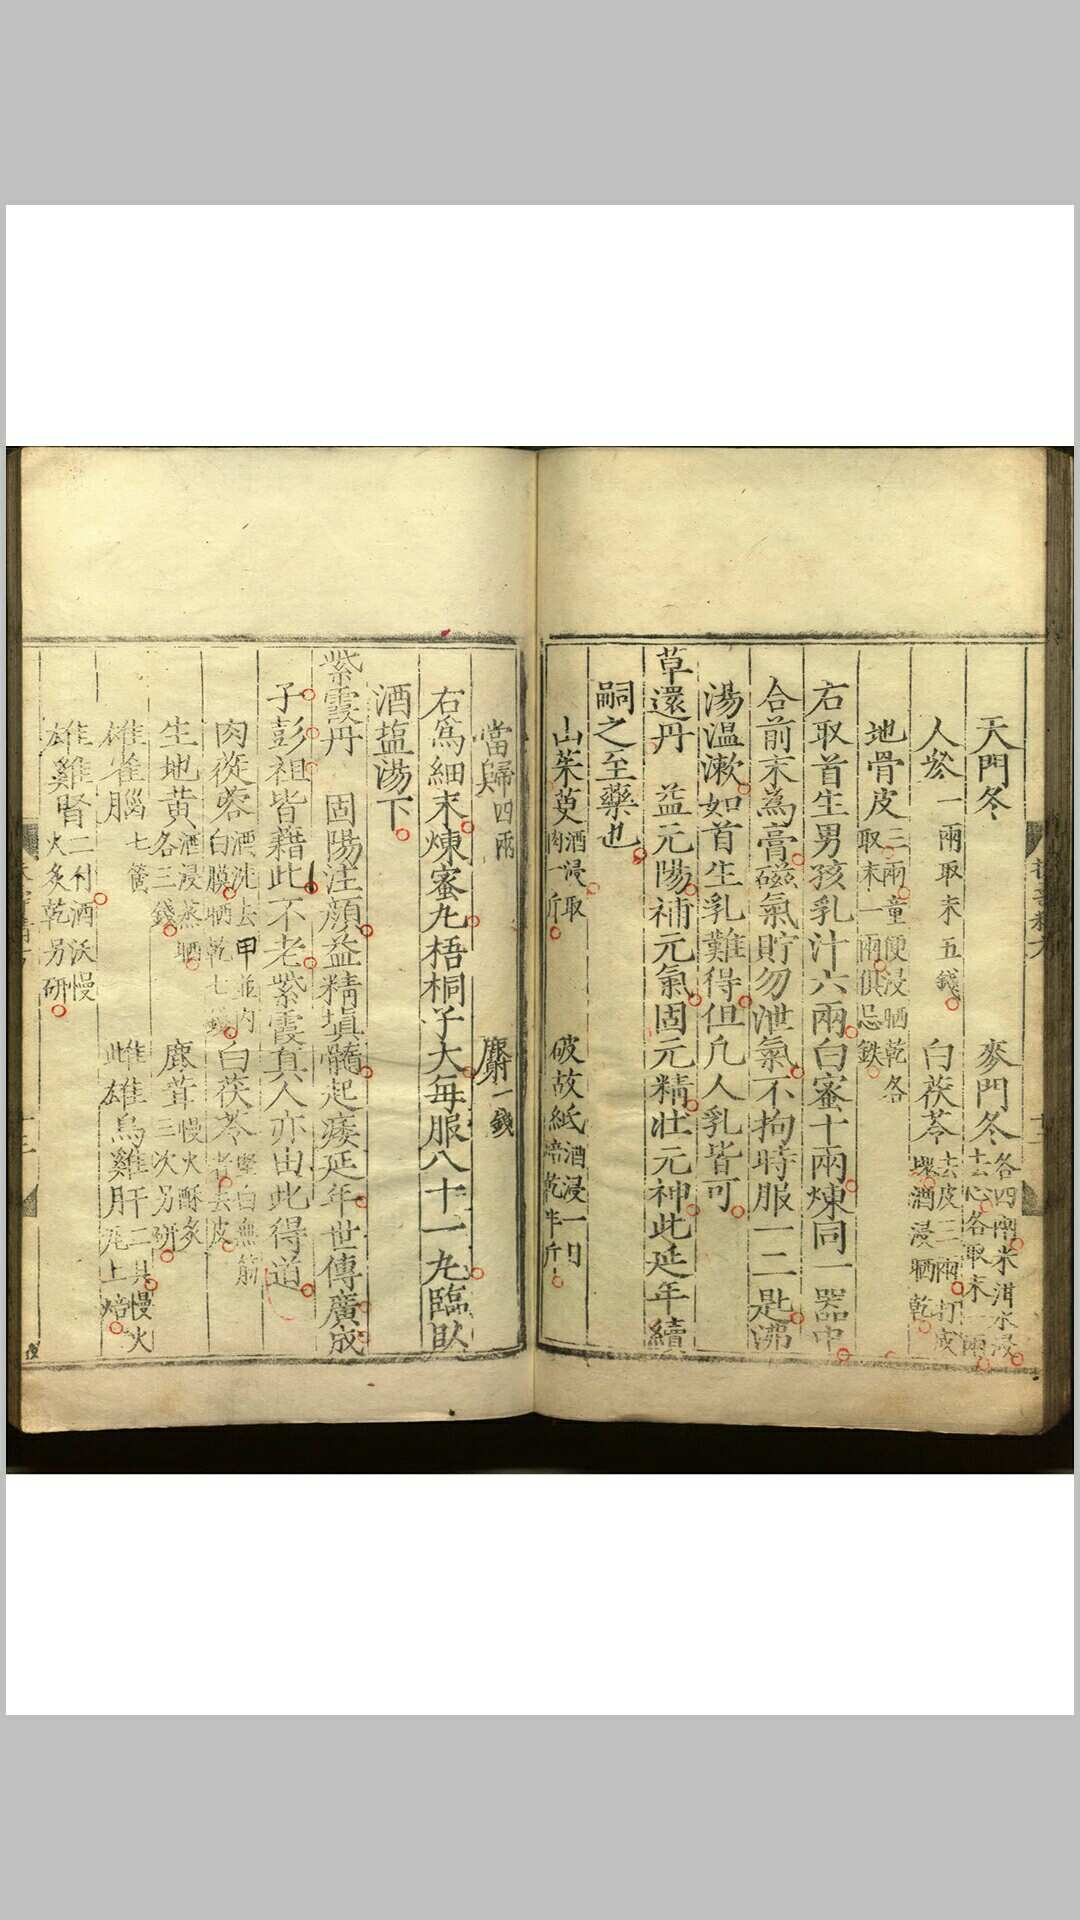 天門冬 麥門冬各四兩米泔水浸去心各取末一兩
人參一兩取末五錢 白茯苓去皮三兩打碎酒浸晒乾
地骨皮三兩童便浸晒乾各取末一兩俱忌鉄
右取首生男孩乳汁六兩白蜜十兩煉同一器中
合前末為膏磁氣貯勿泄氣不拘時服一二匙沸
湯温漱如首生乳難得但凢人乳皆可
草還丹 益元陽補元氣固元精壯元神此延年續
嗣之至藥也
山茱萸酒浸取肉一斤 破故紙酒浸一日焙乾半斤
當歸四兩 麝一錢
右為細末煉蜜丸梧桐子大每服八十一丸臨臥
酒塩湯下
紫霞丹 固陽注顏益精塡髓起痿延年世傳廣成
子彭祖皆藉此不老紫霞真人亦由此得道
肉蓯蓉酒洗去甲並内白膜晒乾七錢 白茯苓堅白無筋者去皮
生地黄酒浸蒸晒各三錢 鹿茸慢火酥炙三次另研
雄雀腦七箇 雌雄烏雞肝二具慢火瓦上焙
雄雞腎二付酒沃慢火炙乾另研